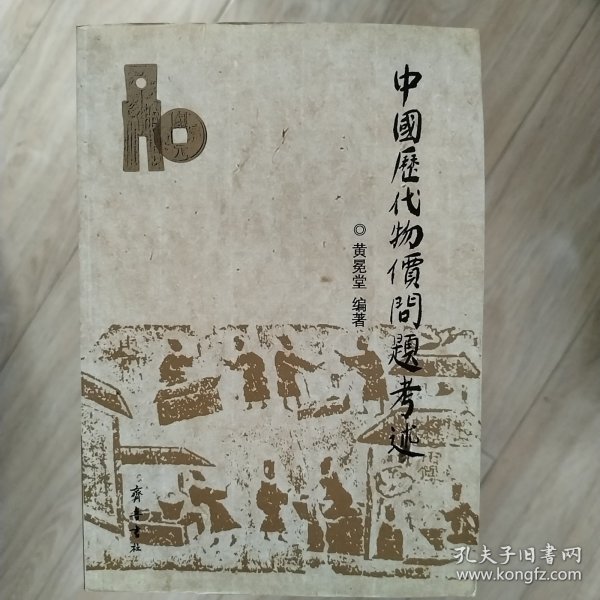 中國歷代物價問題考述
◎ 黄冕堂 编著
齊魯書社
孔夫子旧书网
www.kongfz.com